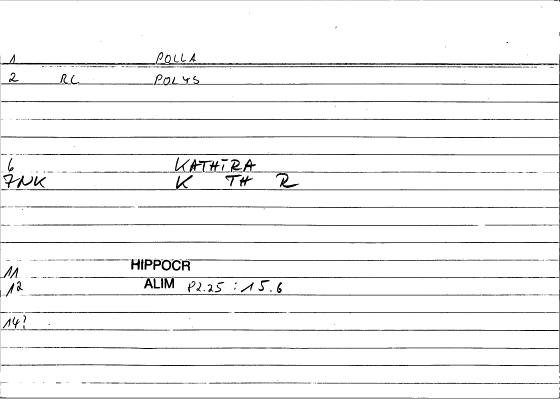 1 POLLA
2 RC POLYS
6 KATHIRA
7NK K TH R
11 HIPPOCR
12 ALIM P2.25 : 15.6
14?